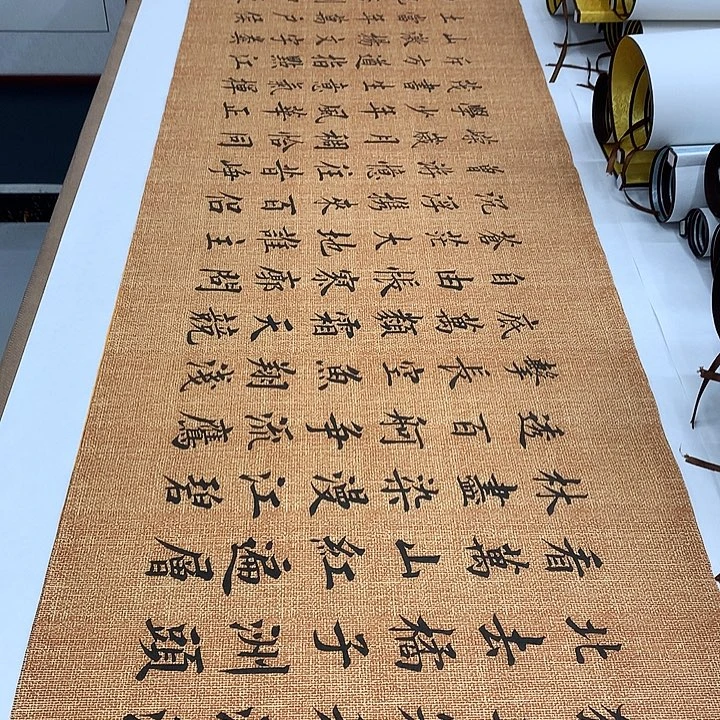 北去橘子洲頭
看萬山紅遍層
林盡染漫江碧
透百舸争流鷹
擊長空魚翔淺
底萬類霜天競
自由悵寥廓問
蒼茫大地誰主
沉浮攜來百侶
曾游憶往昔崢
嶸歲月稠恰同
學少年風華正
茂書生意氣揮
斥方遒指點江
山激揚文字糞
土當年萬戶侯